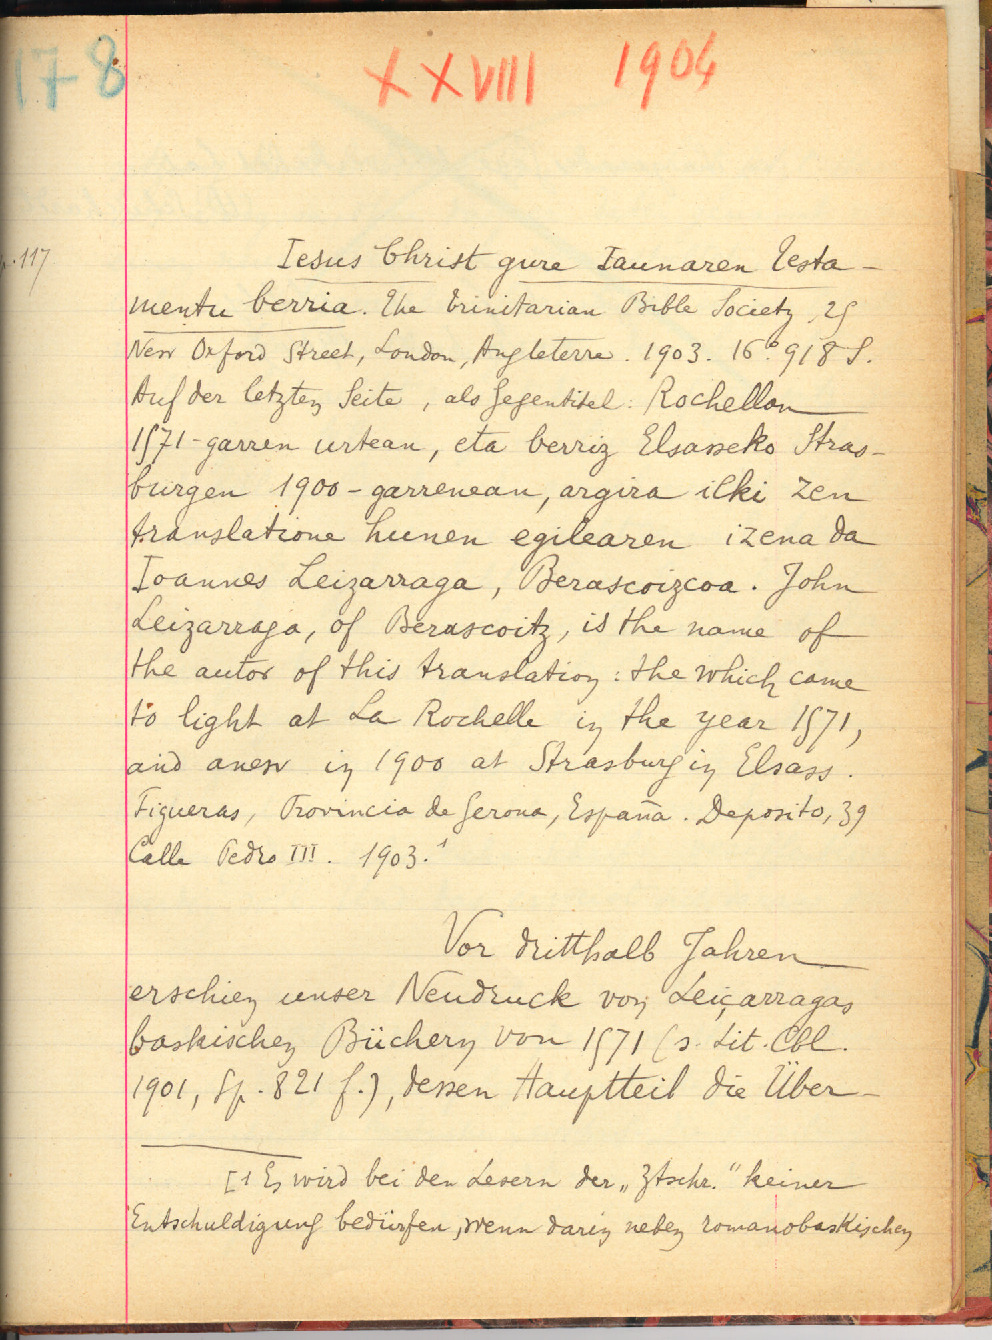 178
XXVIII 1904
p. 117
Iesus Christ gure Iaunaren Testa-
mentu berria. The Trinitarian Bible Society, 25
New Oxford Street, London, Angleterre. 1903. 16°. 918 S.
Auf der letzten Seite, als Gegentitel: Rochellan
1571-garren urtean, eta berriz Elsasseko Stras-
burgen 1900-garrenean, argira ilki zen
translatione hunen egilearen izena da
Ioannes Leizarraga, Berascoizcoa. John
Leizarraga, of Berascoitz, is the name of
the autor of this translation: the which came
to light at La Rochelle in the year 1571,
and anew in 1900 at Strasburg in Elsass.
Figueras, Provincia de Gerona, España. Deposito, 39
Calle Pedro III. 1903.¹
Vor dritthalb Jahren
erschien unser Neudruck von Leiçarragas
baskischen Büchern von 1571 (s. Lit. Cbl.
1901, Sp. 821 f.), dessen Hauptteil die Über-
[1 Es wird bei den Lesern der „Ztschr.“ keiner
Entschuldigung bedürfen, wenn darin neben romanobaskischen